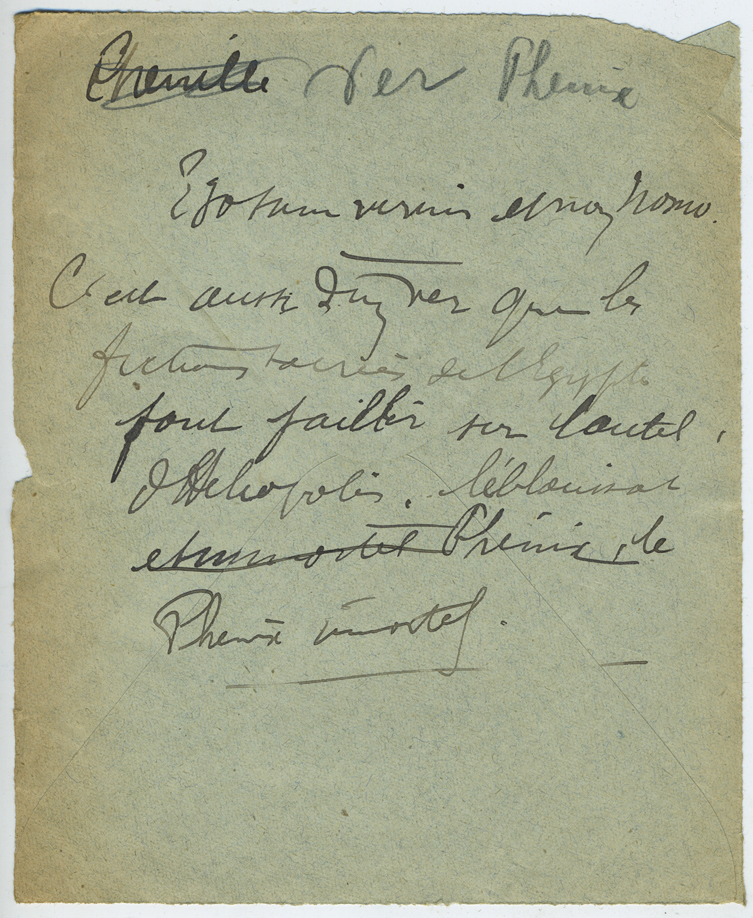 Chenille Ver Phenix
Ego sum vermis et non homo.
C'est aussi d'un ver que les
fictions sacrées de l'Egypte
font jaillir sur l'autel
d'Héliopolis, l'éblouissant
et immortel Phénix, le
Phenix immortel.